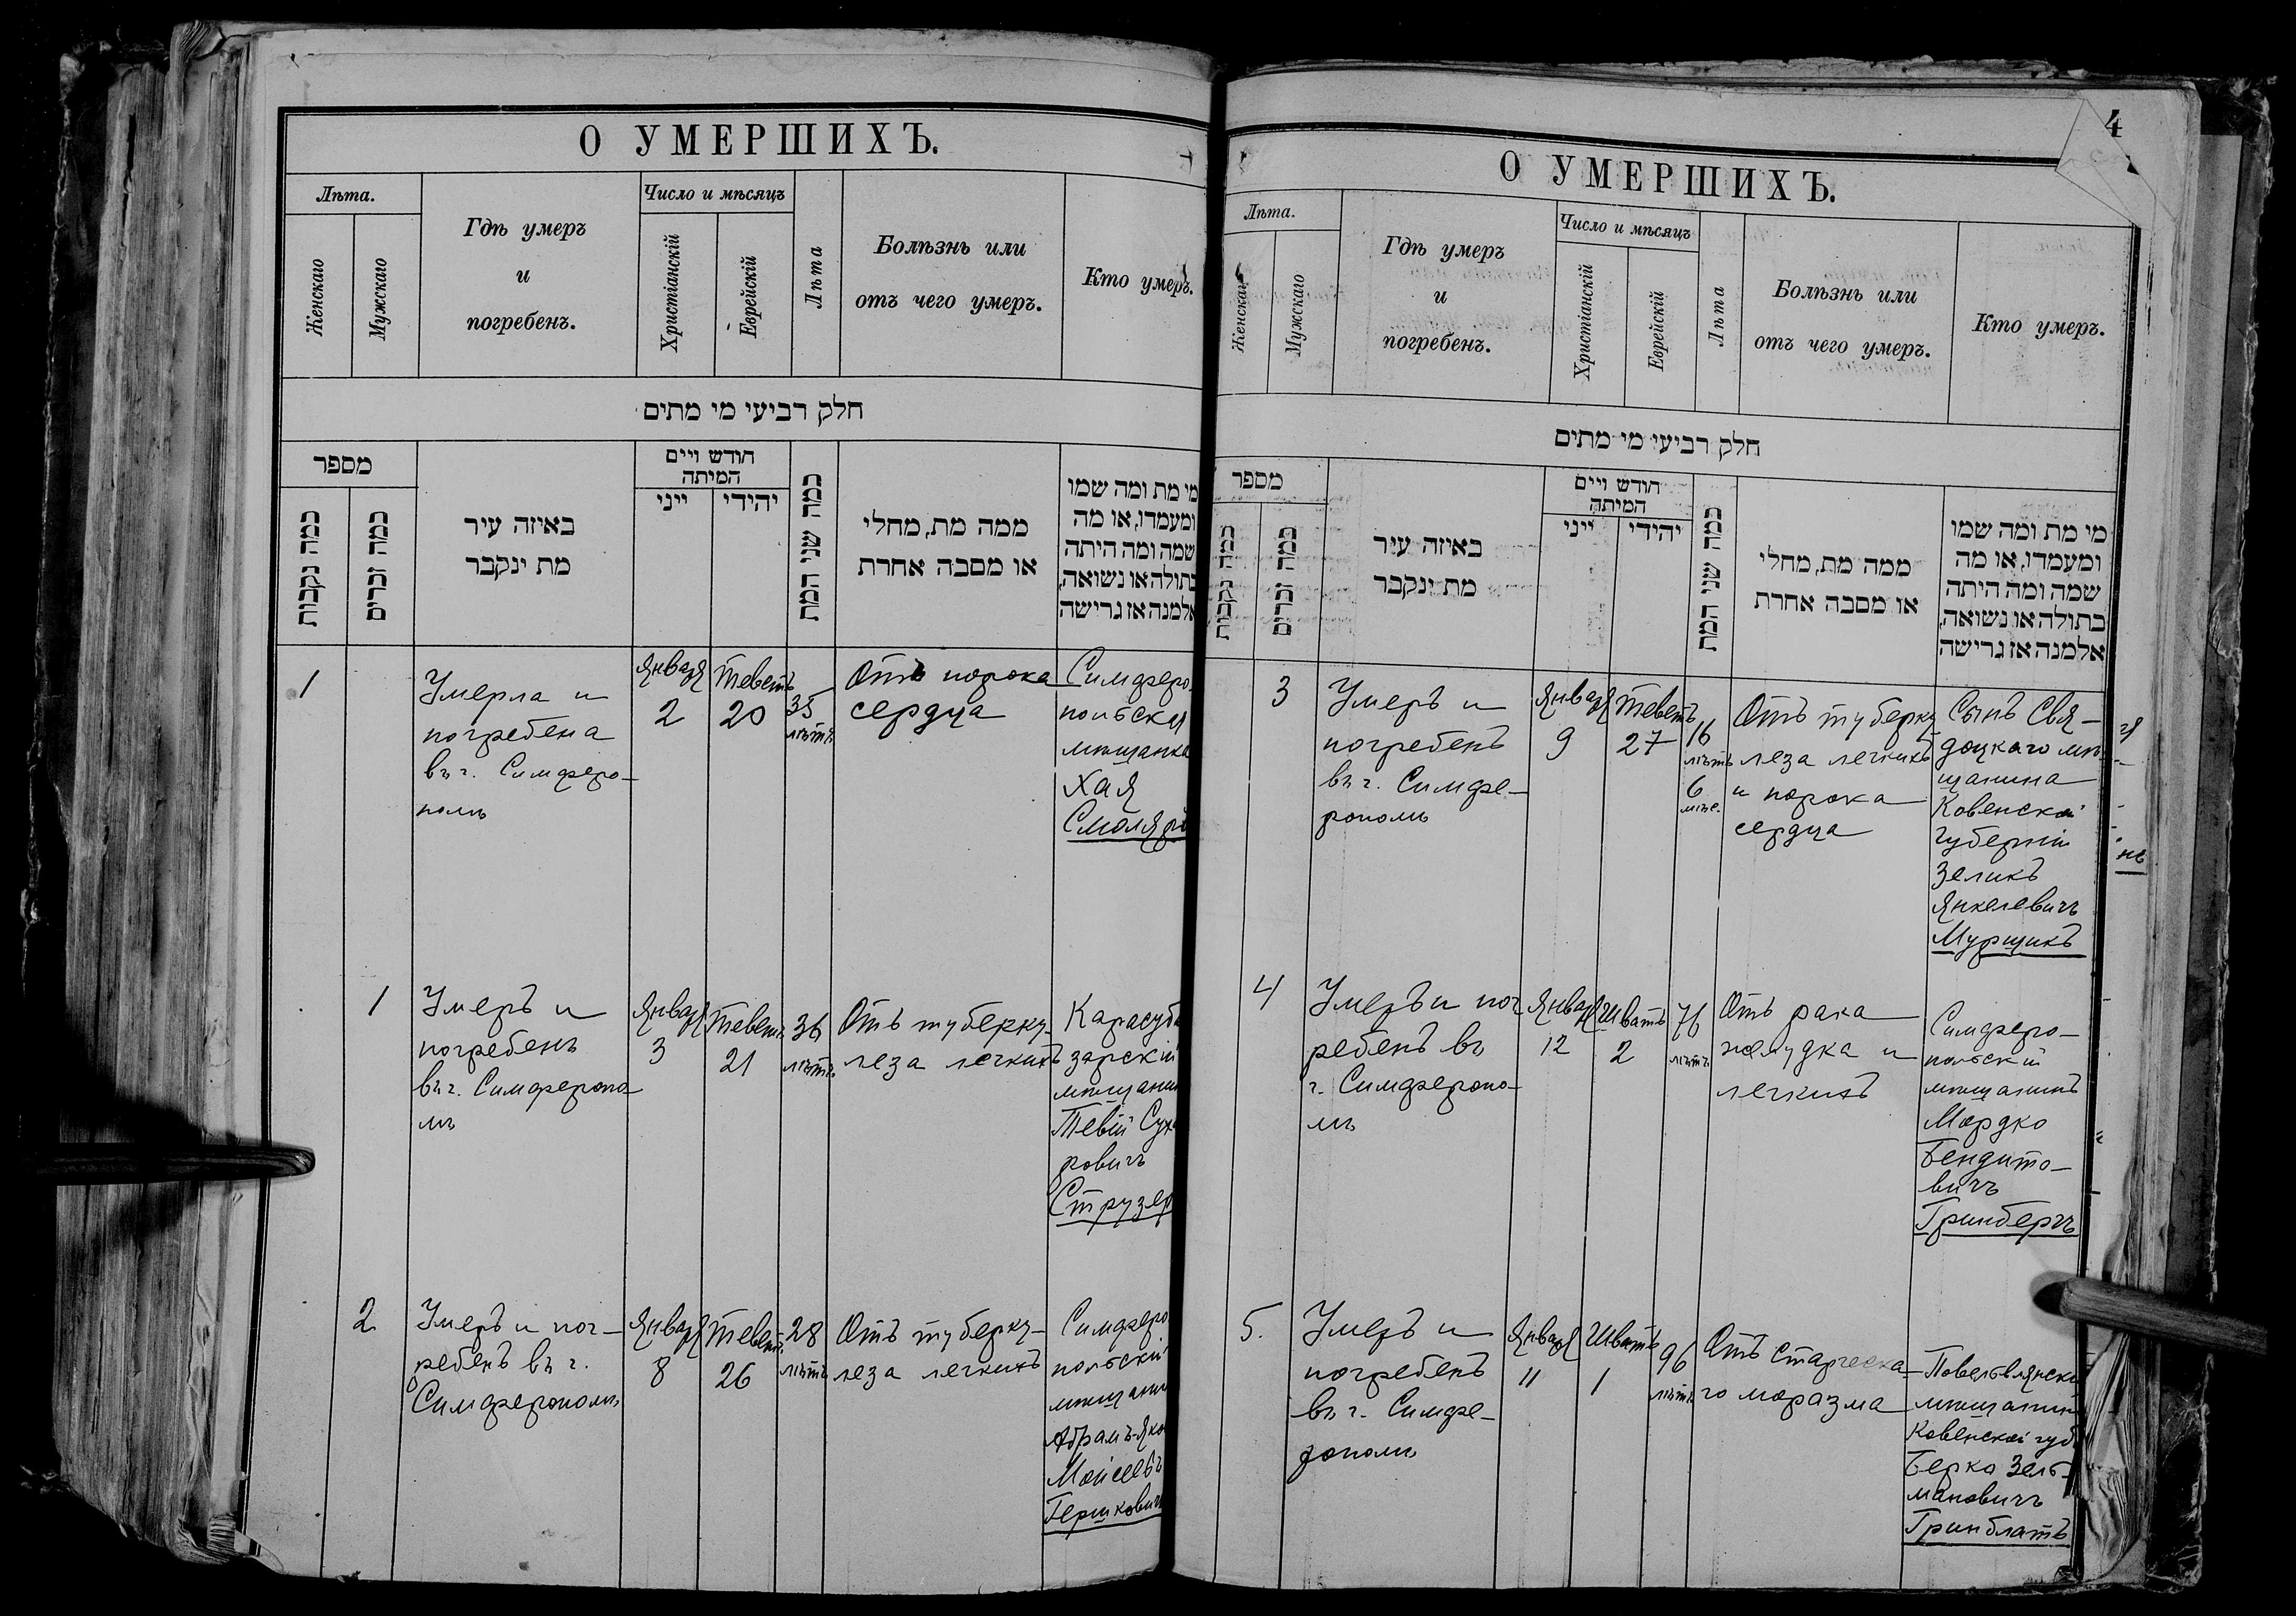 О УМЕРШИХЪ.
Лѣта.
Женскаго
Мужскаго
Гдѣ умеръ
и
погребенъ.
Число и мѣсяцъ
Христіанскій
Еврейскій
Лѣта
Болѣзнь или
отъ чего умеръ.
Кто умеръ.
חלק רביעי מי מתים
מספר
כמה נקבות
כמה זכרים
באיזה עיר
מת ינקבר
חודש ויים
המיתה
ייני
יהידי
כמה שני המת
ממה מת, מחלי
או מסבה אחרת
מי מת ומה שמו
ומעמדו, או מה
שמה ומה היתה
בתולה או נשואה,
אלמנה אז גרישה
1
Умерла и
погребена
въ г. Симферо-
полѣ
Января
2
Теветъ
20
35
лѣтъ
Отъ порока
сердца
Симферо-
польская
мѣщанка
Хая
1
Умеръ и
погребенъ
въ г. Симферопо-
лѣ
Января
3
Теветъ
21
36
лѣтъ
Отъ туберку-
леза легкихъ
Карасуба
зарскій
мѣщанин
Тевій
ровичъ
Струзер
2
Умеръ и пог-
ребенъ въ г.
Симферополѣ
Января
8
Тевет.
26
28
лѣтъ
Отъ туберку-
леза легкихъ
Симферо
польскій
мѣщанин
Абрамъ-Яко
Моисеевъ
Гершкович
4
О УМЕРШИХЪ.
Лѣта.
Женскаго
Мужскаго
Гдѣ умеръ
и
погребенъ.
Число и мѣсяцъ
Христіанскій
Еврейскій
Лѣта
Болѣзнь или
отъ чего умеръ.
Кто умеръ.
חלק רביעי מי מתים
מספר
כמה נקבות
כמה זכרים
באיזה עיר
מת ינקבר
חודש ויים
המיתה
ייני
יהידי
כמה שני המת
ממה מת, מחלי
או מסבה אחרת
מי מת ומה שמו
ומעמדו, או מה
שמה ומה היתה
בתולה או נשואה,
אלמנה אז גרישה
3
Умеръ и
погребенъ
въ г. Симфе-
рополѣ
Января
9
Теветъ
27
16
лѣтъ
6
мѣс.
Отъ туберку
леза легкихъ
и порока
сердца
Сынъ Свя-
доцкаго мѣ-
щанина
Ковенской
губерніи
Зеликъ
Янкелевичъ
Мурщикъ
4
Умеръ и пог
ребенъ въ
г. Симферопо-
лѣ
Января
12
Шватъ
2
76
лѣтъ
Отъ рака
желудка и
легкихъ
Симферо-
польскій
мѣщанинъ
Мордко
Бендито-
вичъ
Гринбергъ
5.
Умеръ и
погребенъ
въ г. Симфе-
рополѣ
Января
11
Шватъ
1
96
лѣтъ
Отъ старческа-
го маразма
Повельвянскі
мѣщанин
Ковенской губ.
Берка Зель-
мановичъ
Гринблатъ